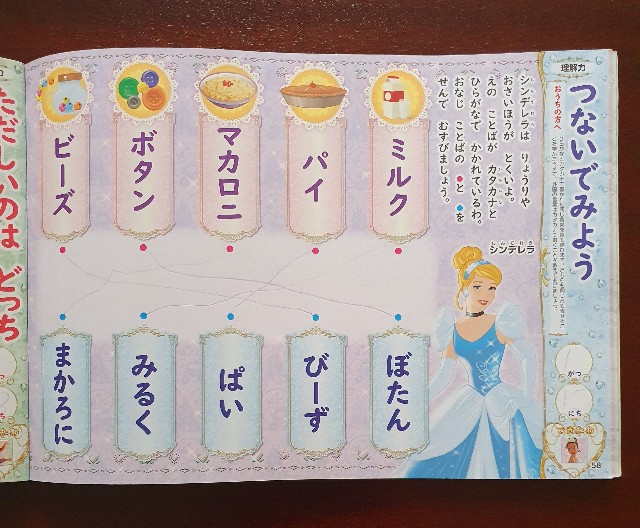 理解力
つないでみよう
おうちの方へ
シンデレラは りょうりや
おさいほうが とくいよ。
えの ことばが カタカナと
ひらがなで かかれているわ。
おなじ ことばの ●と ●を
せんで むすびましょう。
しんでれら
シンデレラ
ミルク
パイ
マカロニ
ボタン
ビーズ
ぼたん
びーず
ぱい
みるく
まかろに
がつ
にち
58
ただしいのは どっち